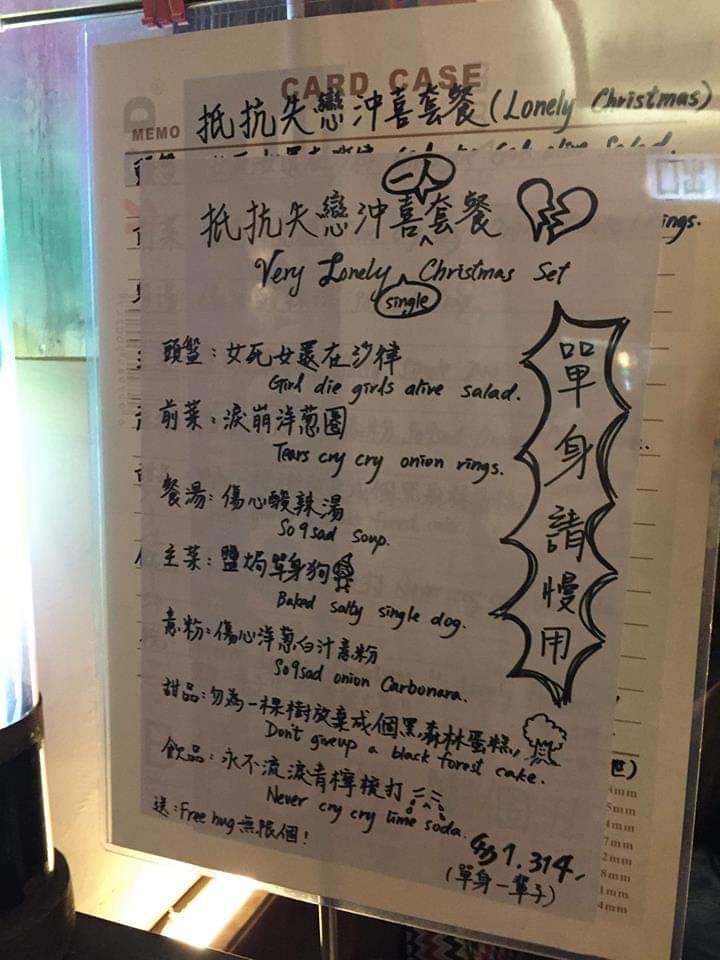 CARD CASE
MEMO
抵抗失戀沖喜套餐(Lonely Christmas)
一人
抵抗失戀沖喜套餐
Very Lonely Christmas Set
single
頭盤:女死女還在沙律
Girl die girls alive salad.
前菜:淚崩洋葱圈
Tears cry cry onion rings.
餐湯:傷心酸辣湯
So9sad soup.
主菜:鹽焗單身狗
Baked salty single dog.
意粉:傷心洋葱白汁意粉
So9sad onion Carbonara.
甜品:勿為一棵樹放棄成個黑森林蛋糕,
Don't giveup a black forest cake.
飲品:永不流淚青檸梳打
Never cry cry lime soda.
送:Free hug無限個!
$1,314.
(單身一輩子)
單身請慢用